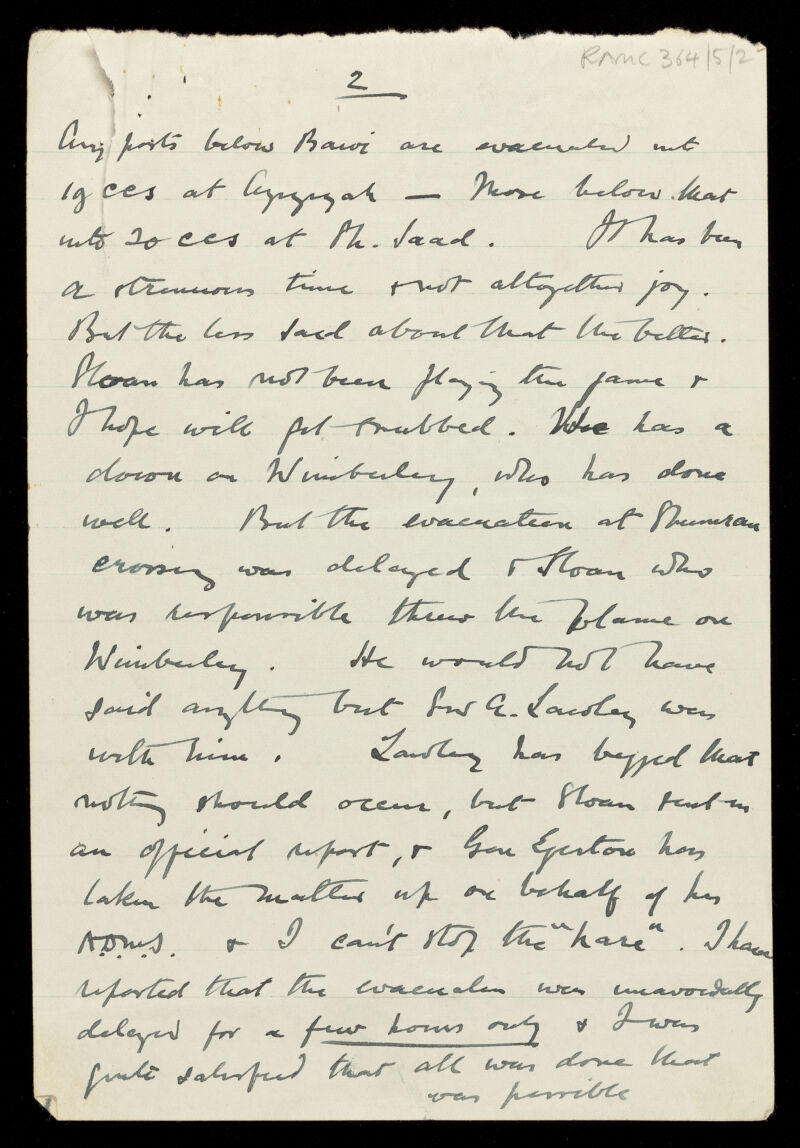 RAMC 364/5/2
2
Any posts below Bawi are evacuated into
19 CCS at Azizizyah — Those below that
into 20 CCS at Sh. Saad. It has been
a strenuous time & not altogether joy.
But the less said about that the better.
Sloan has not been playing the game &
I hope will get snubbed. He has a
down on Wimberley, who has done
well. But the evacuation at Shumran
crossing was delayed & Sloan who
was responsible threw the blame on
Wimberley. He would not have
said anything but Sir A. Lawley was
with him. Lawley has begged that
nothing should occur, but Sloan sent in
an official report, & Gen Egerton has
taken the matter up on behalf of his
A.D.M.S. & I can't stop the "hare". I have
reported that the evacuation was unavoidably
delayed for a few hours only & I was
quite satisfied that all was done that
was possible